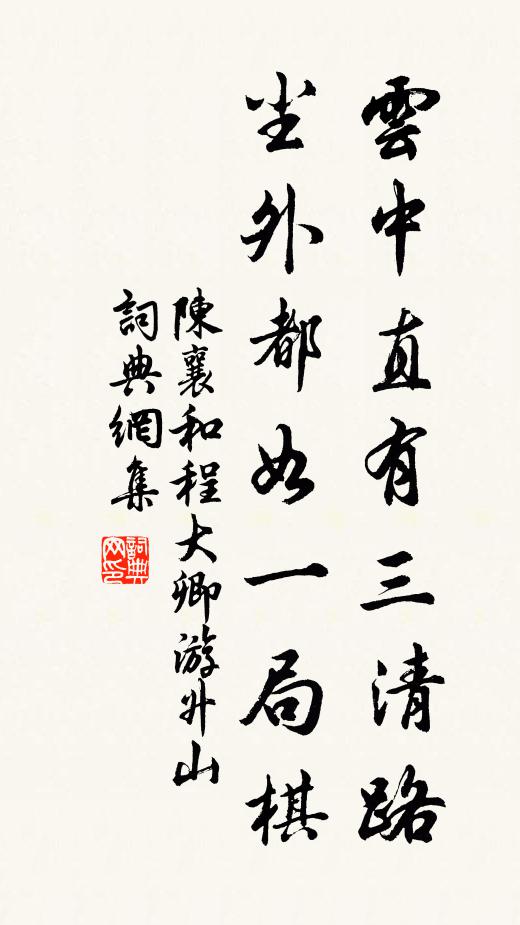 雲中直有三清路
尘外都如一局棋
陳襄和程大卿游升山
詞典網集
詞典网印